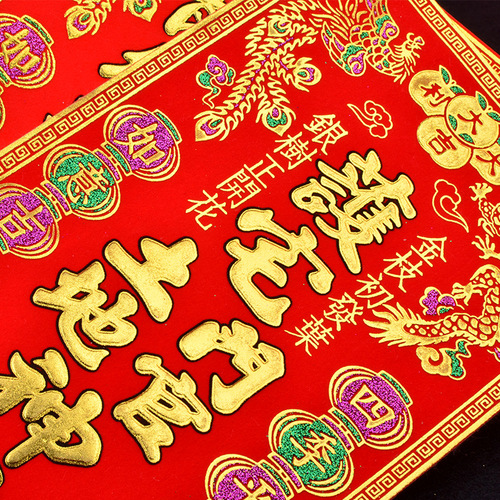 大吉
大利
金枝初發葉
銀樹正開花
護宅門官
土地神
四季
如意吉
如